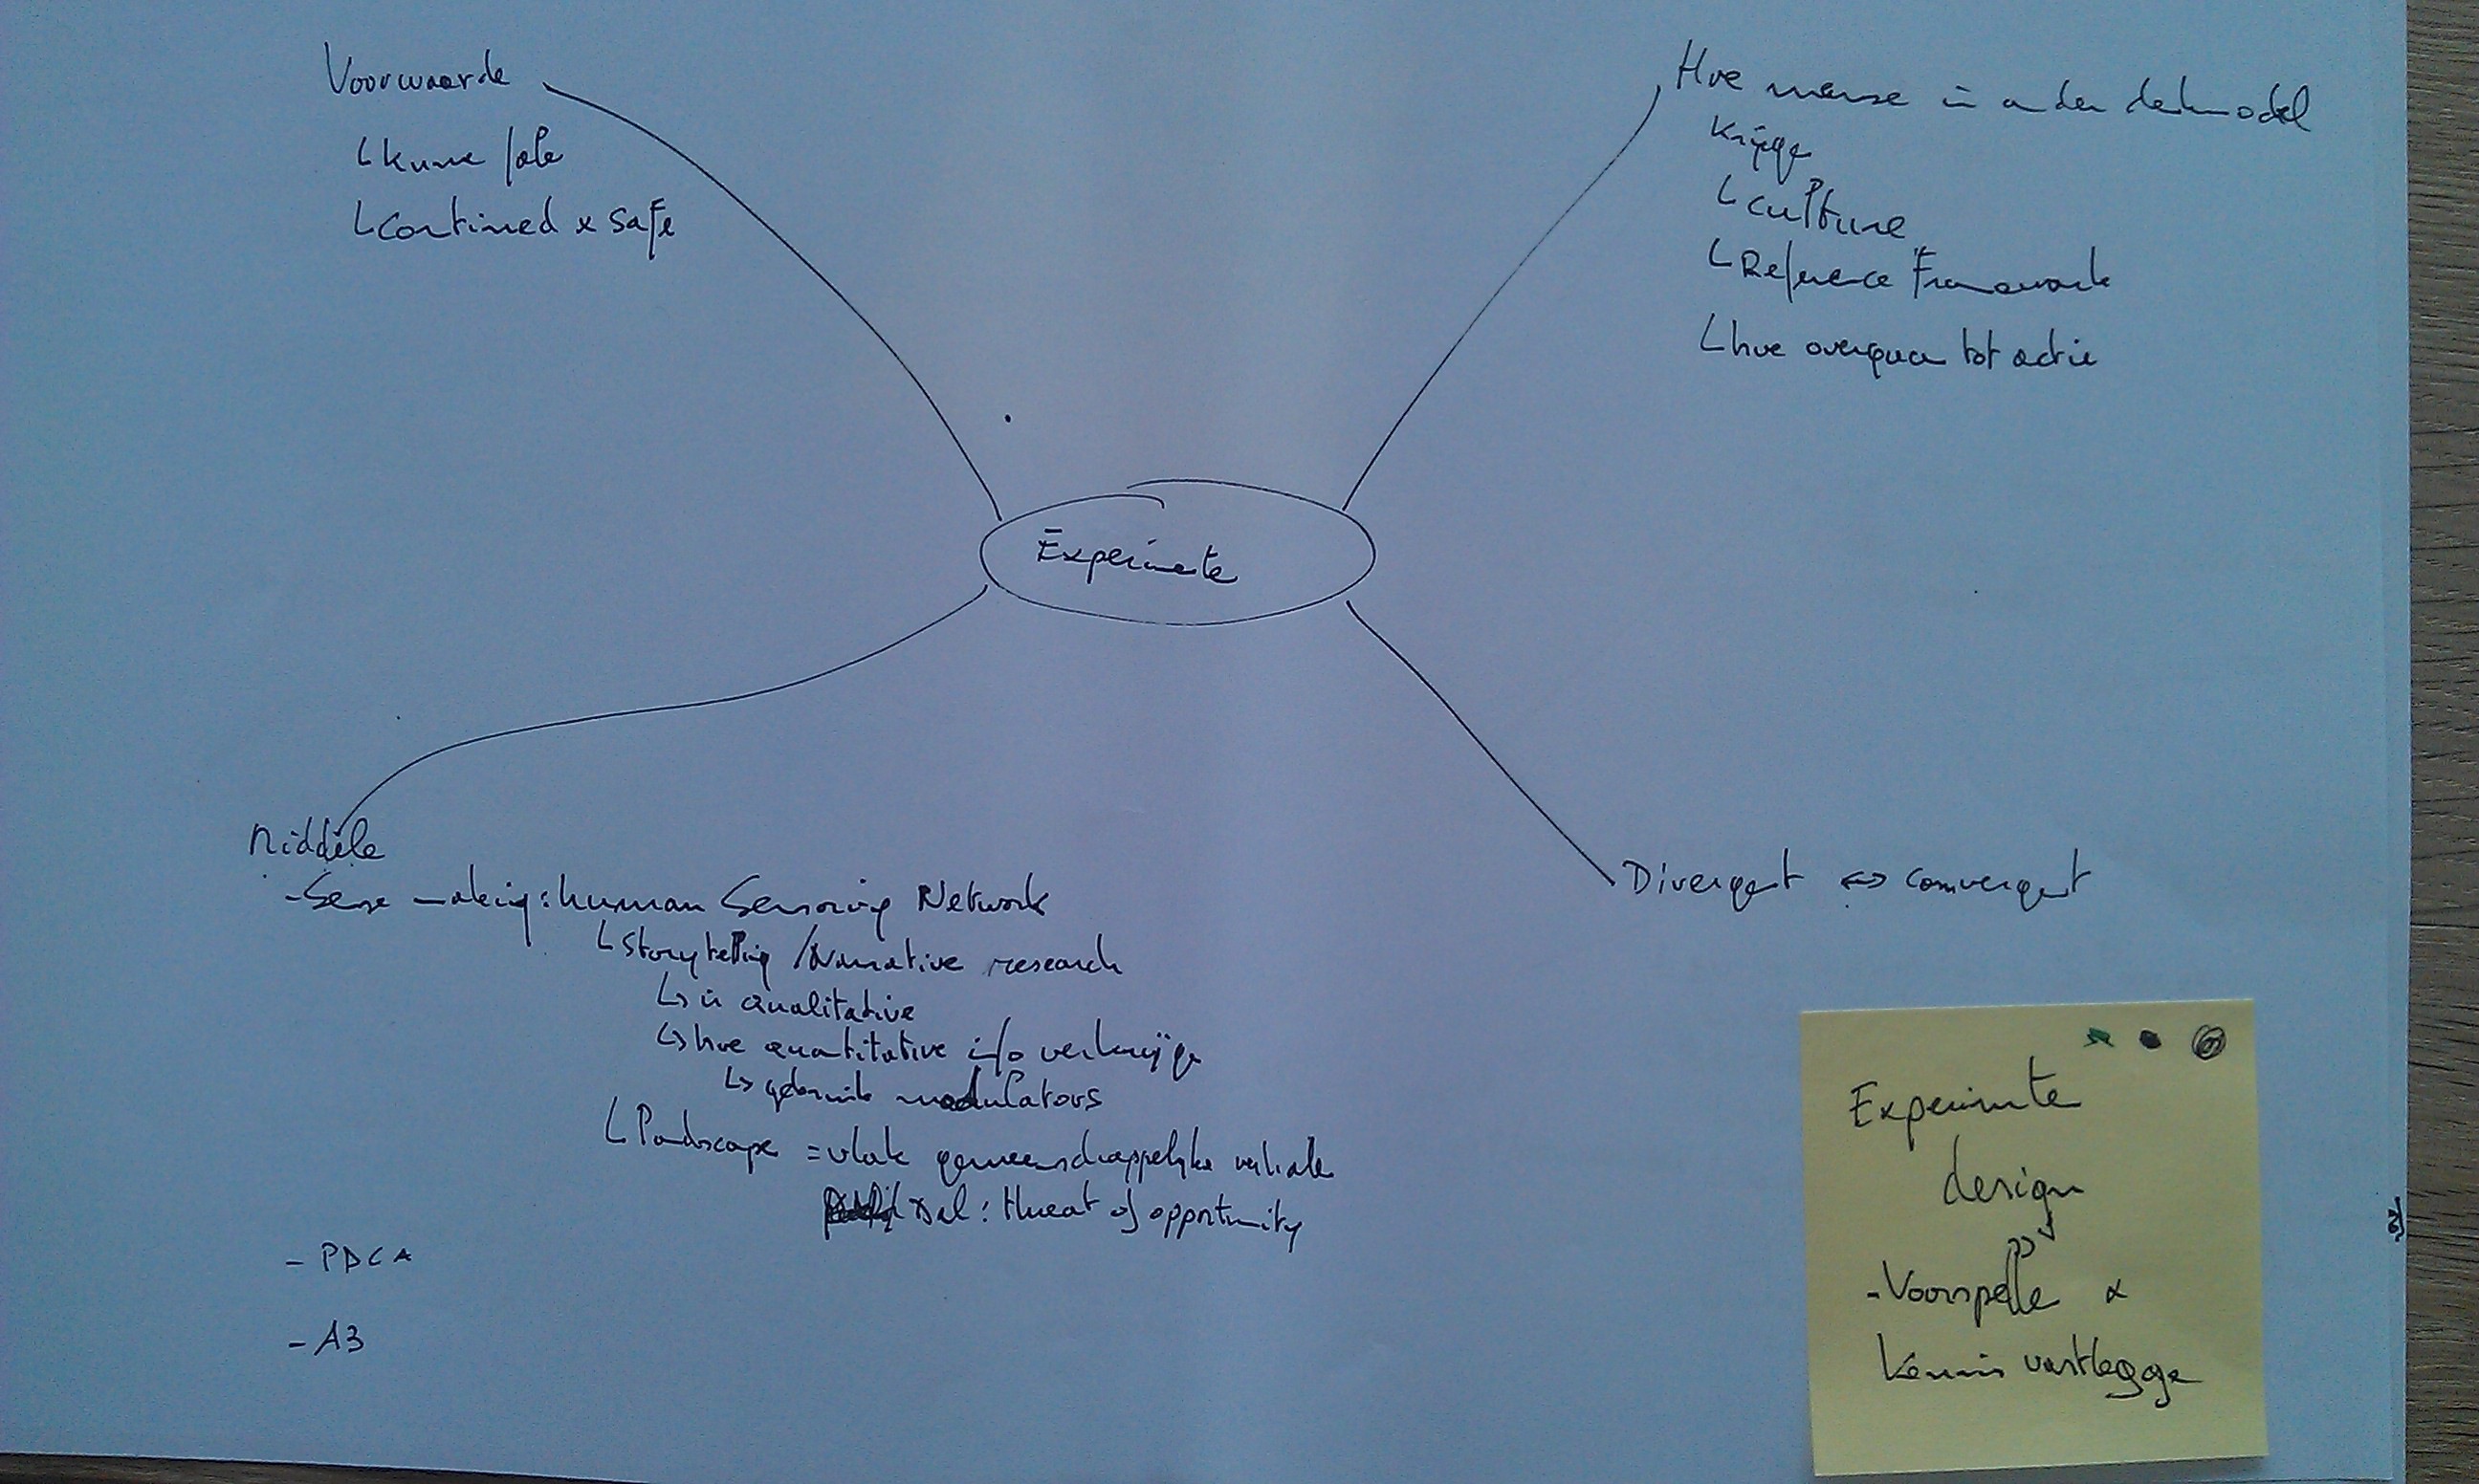 Voorwaarde
kunne fale
Contined & Safe
Hoe mense in ander denkmodel
Krijge
Culture
Reference Framework
hoe overgaan tot actie
Experimente
Middele
- Sense making: human Sensoring Network
Storytelling / Narrative research
is qualitative
hoe quantitative info verkrijge
gebruik modulators
Landscape = vlak gemeenschappelijke verhale
: threat of opportunity
- PDCA
- A3
Divergent <-> convergent
Experimente
design
- Voorspelle &
Kennis vastlegge